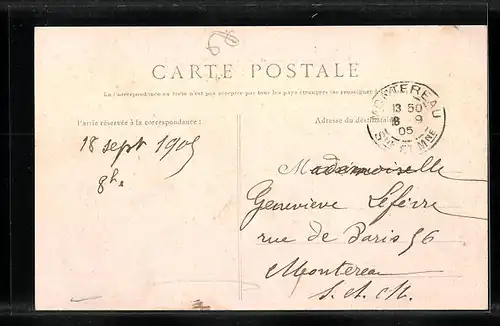 CARTE POSTALE
La Correspondance au recto n'est pas acceptée par tous les pays étrangers (se renseigner à
Partie réservée à la correspondance :
Adresse du destinataire
MONTEREAU
13 50
18 9
05
SNE ET MNE
18 sept 1905
8h
Mademoiselle
Geneviève Lefèvre
rue de Paris 56
Montereau
S. et M.